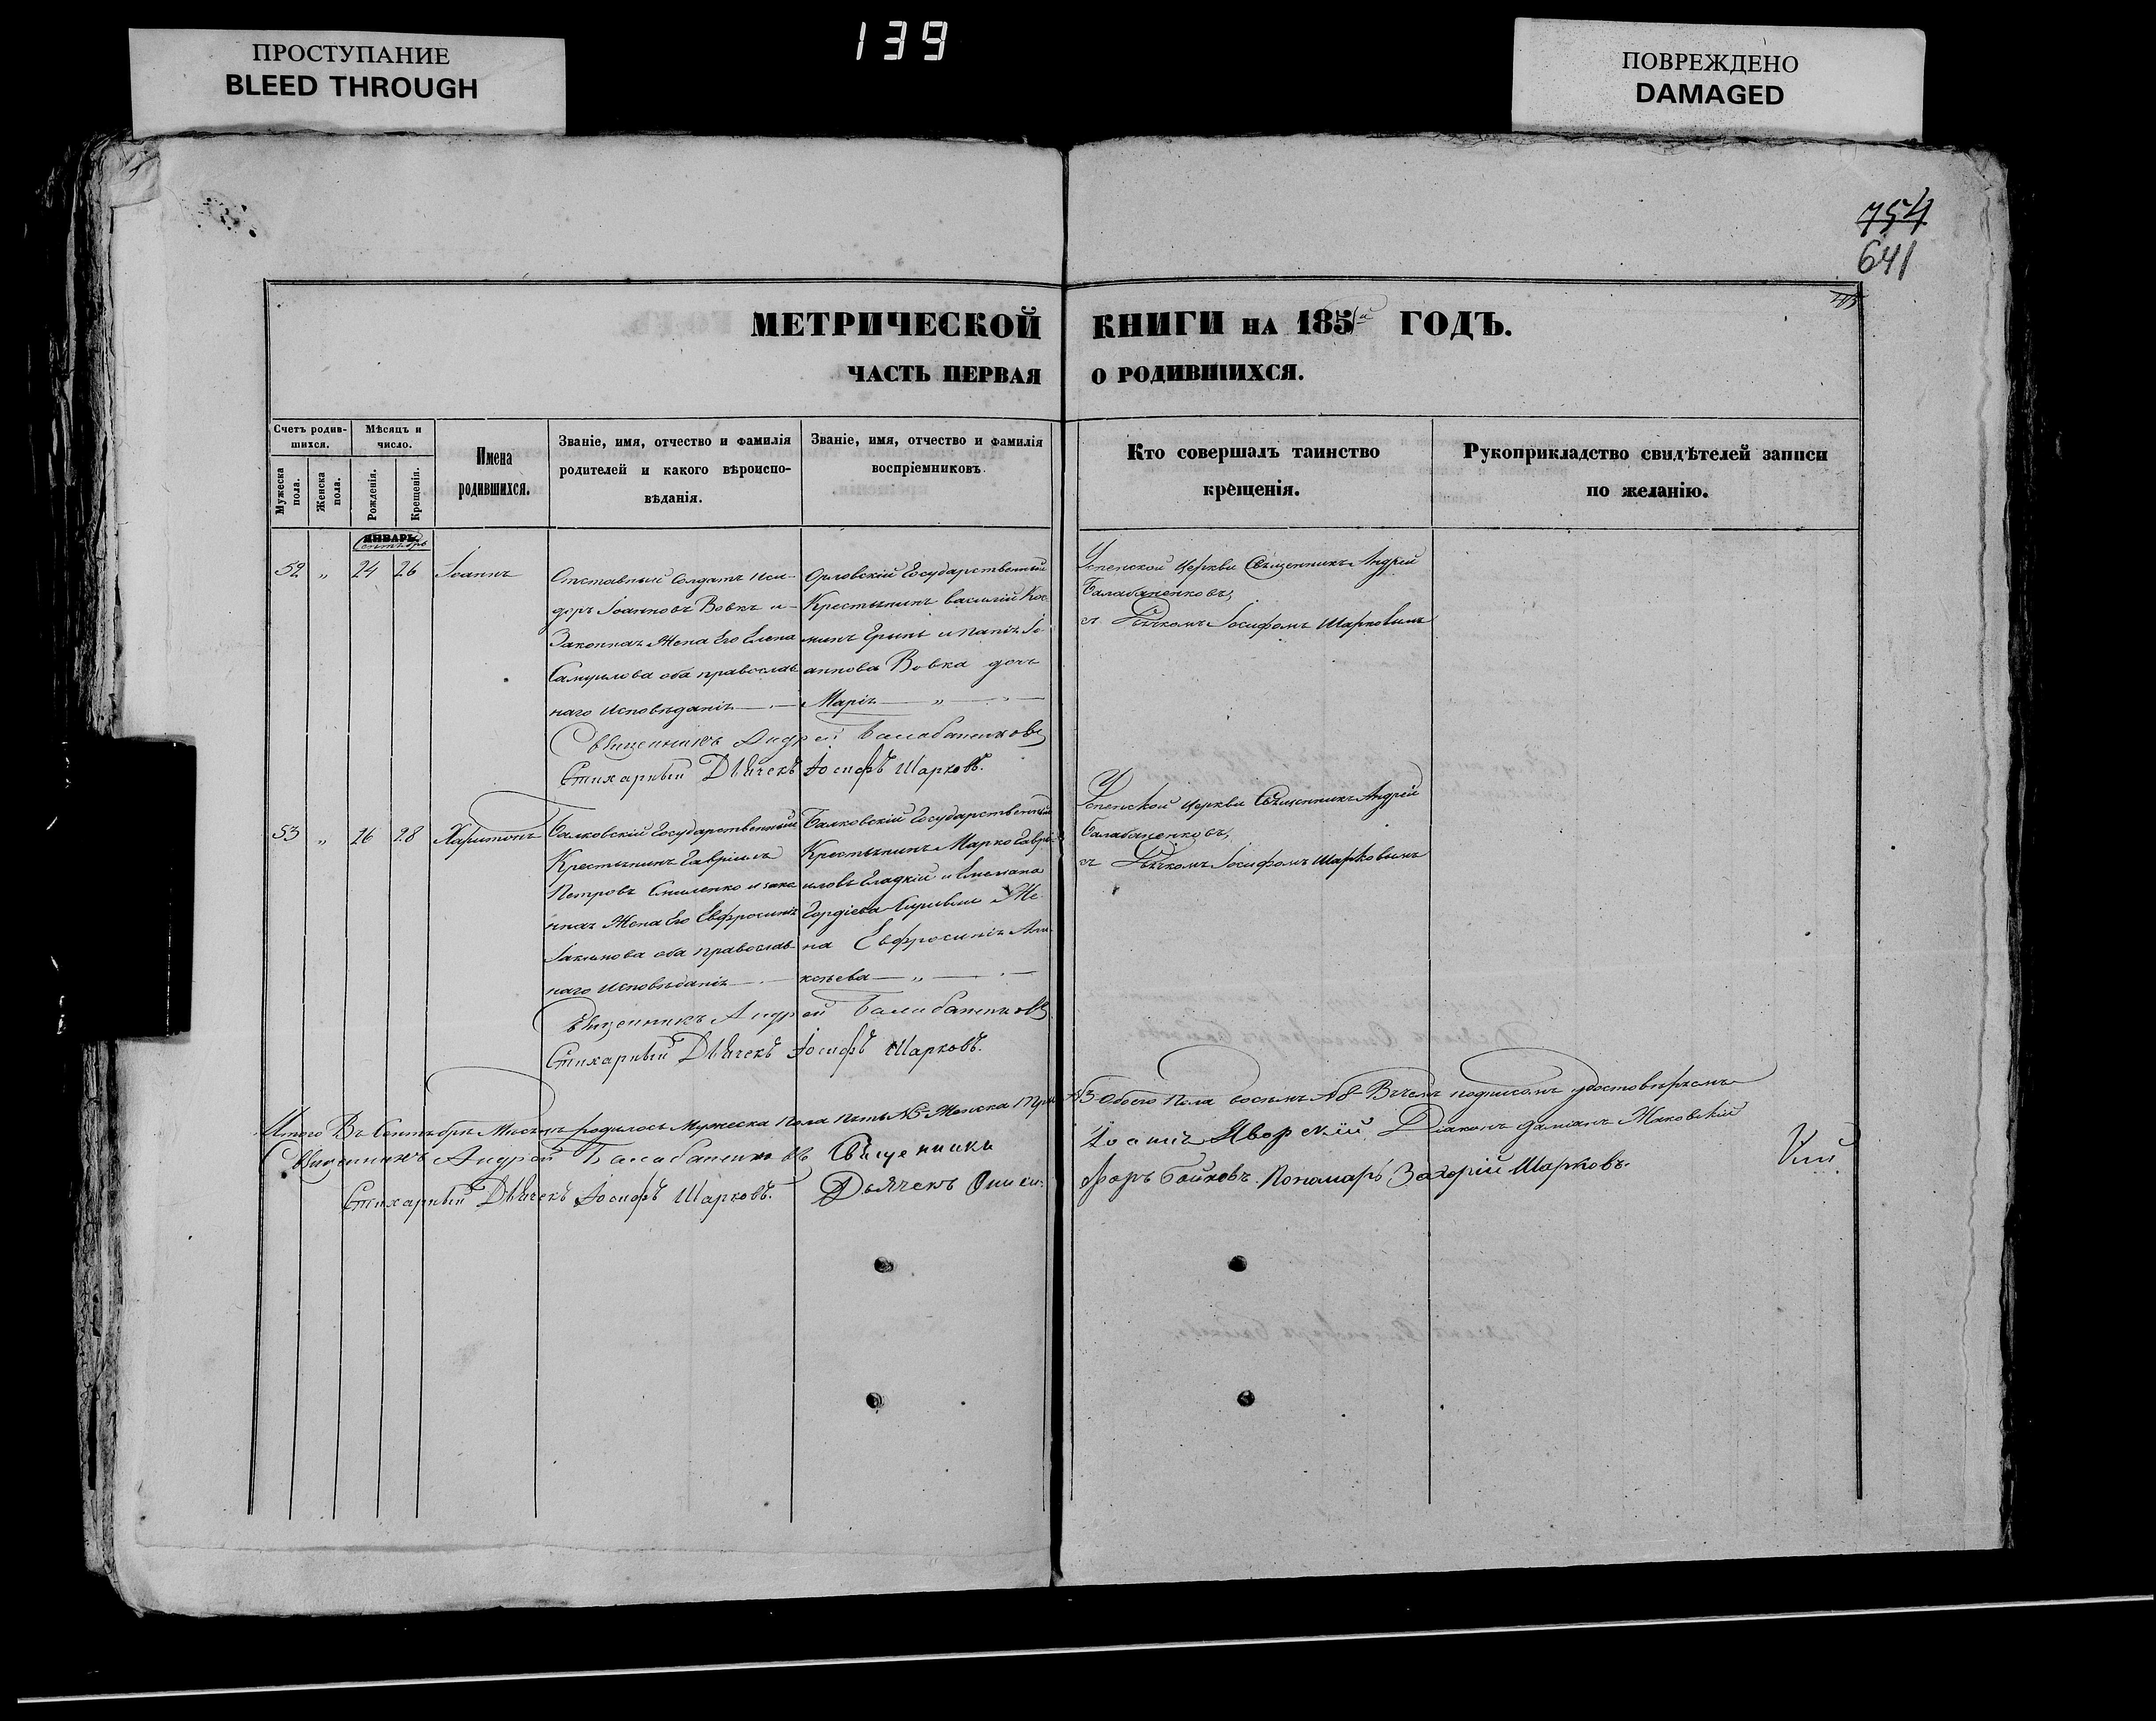 ПРОСТУПАНИЕ
BLEED THROUGH
139
ПОВРЕЖДЕНО
DAMAGED
754
641
МЕТРИЧЕСКОЙ КНИГИ НА 185 ГОДЪ.
ЧАСТЬ ПЕРВАЯ О РОДИВШИХСЯ.
Счетъ родив-
шихся.
Мужеска
пола.
Женска
пола.
Мѣсяцъ и
число.
Рожденія.
Крещенія.
Имена
родившихся.
Званіе, имя, отчество и фамилія
родителей и какого вѣроиспо-
вѣданія.
Званіе, имя, отчество и фамилія
воспріемниковъ.
Кто совершалъ таинство
крещенія.
Рукоприкладство свидѣтелей записи
по желанію.
ЯНВАРЬ.
Сентябрь
52 „ 24 26 Іоаннъ
Отставный Солдатъ Иси-
доръ Іоанновъ Вовкъ и
Законная Жена Его Елена
Самуилова оба православ
наго Исповѣданія
Орловскій Государственный
Крестьянинъ Василий Кос
минъ и Іо
аннова Вовка дочь
Марія „
Успенской Церкви Священникъ Андрей
Балабаненковъ,
съ Дьячкомъ Іосифомъ Шарковымъ
Священникъ Андрей Балабаненковъ
Стихарный Дьячекъ Іосифъ Шарковъ.
53 „ 26 28 Харитонъ
Балковскій Государственный
Крестьянинъ Гавріилъ
Петровъ и зако
нная Жена Его Евфросинія
Іакимова оба православ-
наго Исповѣданія
Балковскій Государственный
Крестьянинъ Марко Гаврі-
иловъ Гладкій и
Гордіева Же
на Евфросинія
„
Успенской Церкви Священникъ Андрей
Балабаненковъ,
съ Дьячкомъ Іосифомъ Шарковымъ
Священникъ Андрей Балабаненковъ
Стихарный Дьячекъ Іосифъ Шарковъ.
Итого Въ Сентябрѣ Мѣсяцѣ родилось Мужеска Пола пять №5 Женска три №3 Обоего Пола восемь №8 Въ чемъ подписомъ удостовѣряемъ
Священникъ Андрей Балабаненковъ Священникъ Яворскій Діаконъ Даміанъ Маковскій
Стихарный Дьячекъ Іосифъ Шарковъ. Дьячекъ Пономарь Захарій Шарковъ.